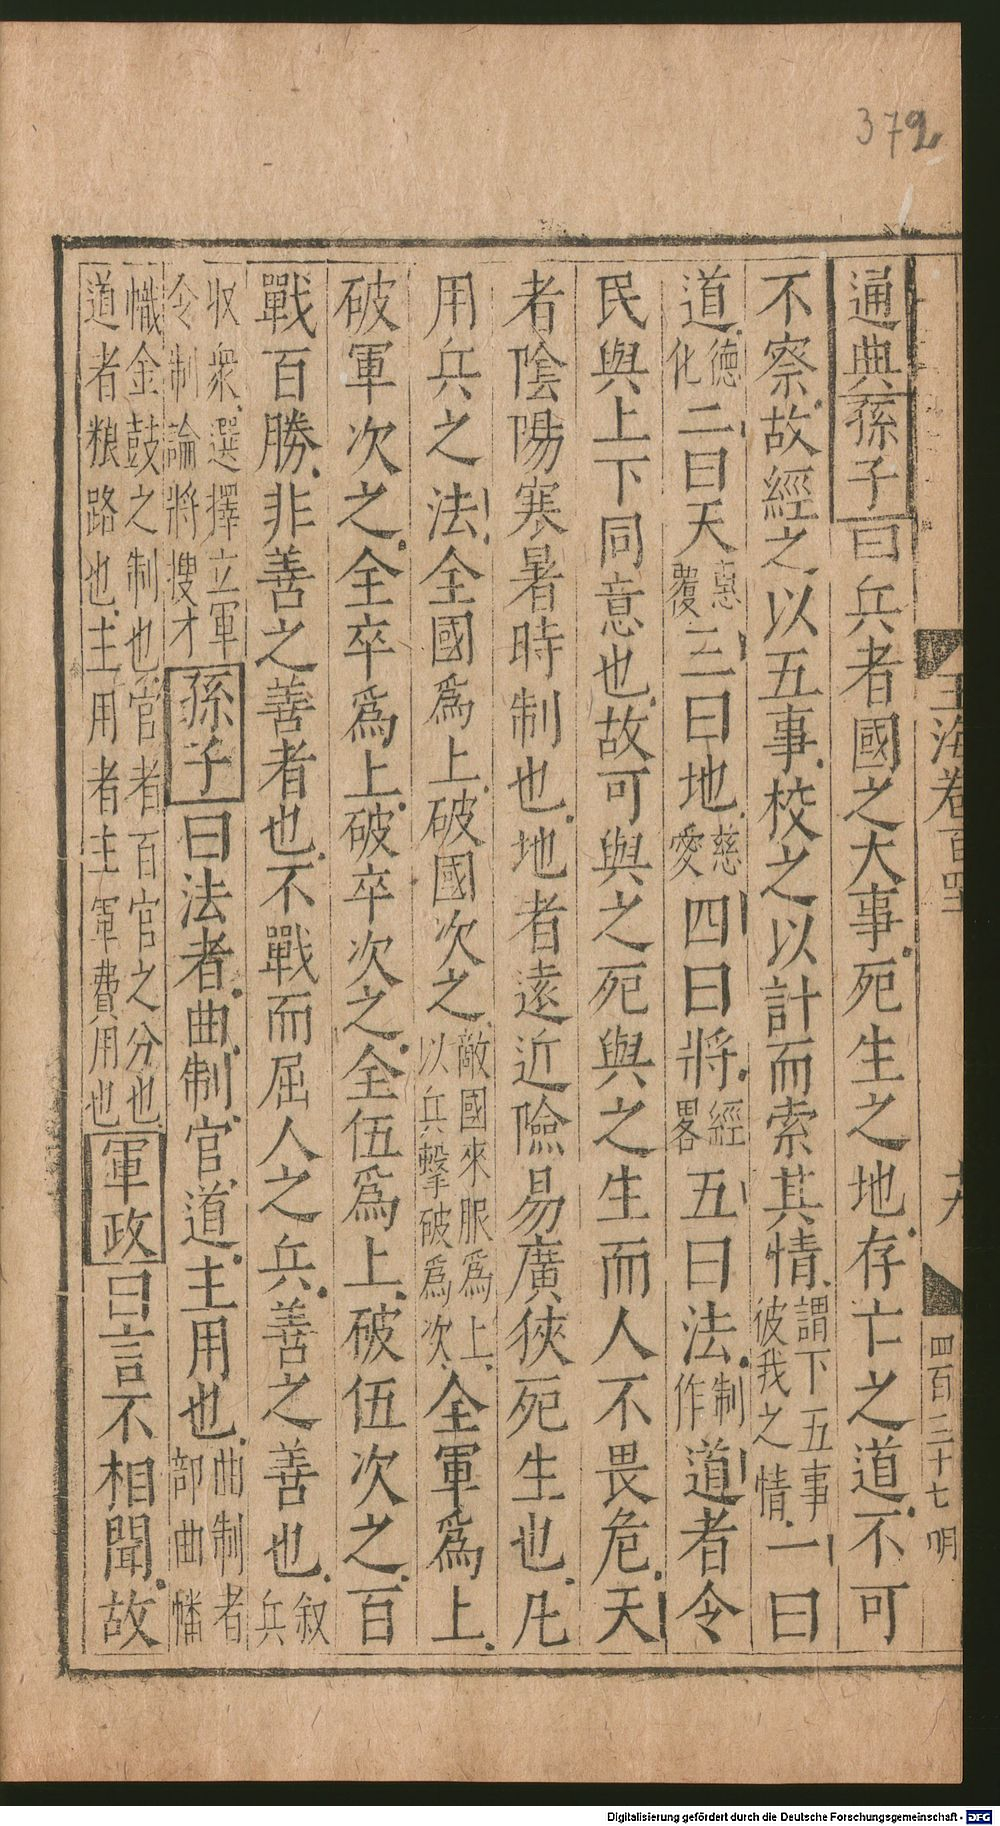 372
玉海卷百四 十九 四百三十七 明
通典孫子曰兵者國之大事死生之地存亡之道不可
不察故經之以五事校之以計而索其情謂下五事彼我之情一曰
道德化二曰天惠覆三曰地慈愛四曰將經畧五曰法制作道者令
民與上下同意也故可與之死與之生而人不畏危天
者陰陽寒暑時制也地者遠近險易廣狹死生也凡
用兵之法全國爲上破國次之敵國來服爲上以兵擊破爲次全軍爲上
破軍次之全卒爲上破卒次之全伍爲上破伍次之百
戰百勝非善之善者也不戰而屈人之兵善之善也叙兵
収衆選擇立軍令制論將搜才孫子曰法者曲制官道主用也曲制者部曲幡
幟金鼓之制也官者百官之分也道者粮路也主用者主軍費用也軍政曰言不相聞故
Digitalisierung gefördert durch die Deutsche Forschungsgemeinschaft - DFG